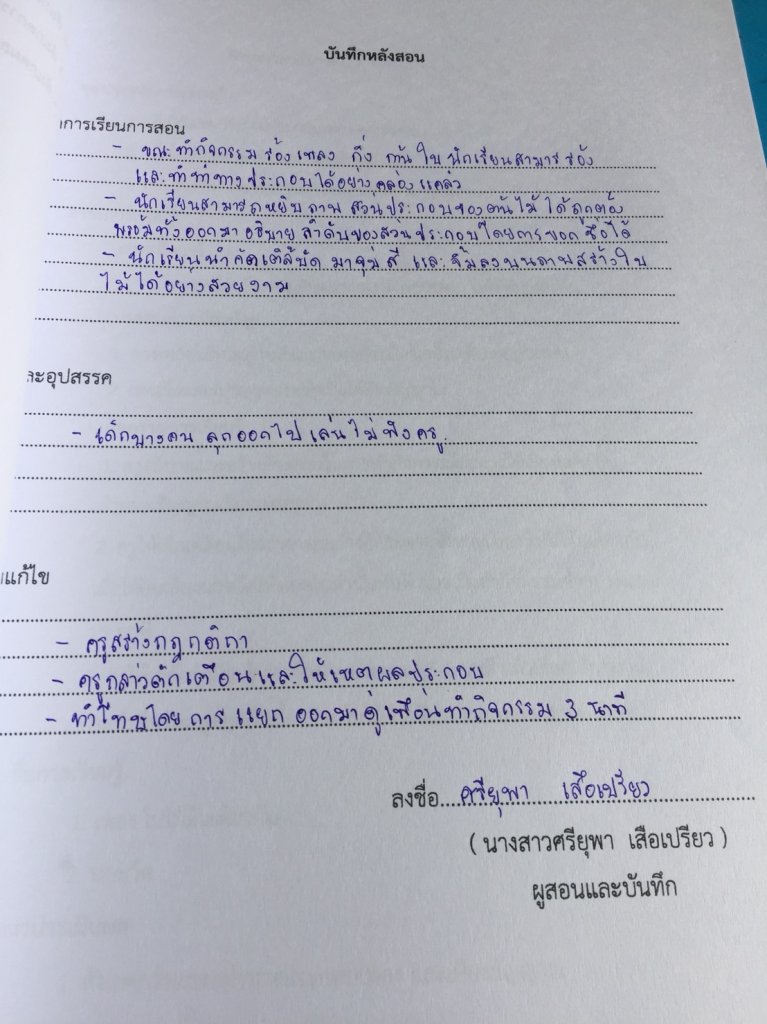 บันทึกหลังสอน
าการเรียนการสอน
- ขณะทำกิจกรรมร้องเพลง กิ่ง ก้าน ใบ นักเรียนสามารถร้อง
และทำท่าทางประกอบได้อย่างคล่องแคล่ว
- นักเรียนสามารถหยิบภาพส่วนประกอบของต้นไม้ได้ถูกต้อง
พร้อมทั้งออกมาอธิบายลำดับของส่วนประกอบโดยการบอกชื่อได้
- นักเรียนนำคัตเติลบัดมาจุ่มสี และจิ้มลงบนภาพสร้างใบ
ไม้ได้อย่างสวยงาม
ละอุปสรรค
- เด็กบางคน ลุกออกไปเล่นไม่ฟังครู
แก้ไข
- ครูสร้างกฎกติกา
- ครูกล่าวตักเตือนและให้เหตุผลประกอบ
- ทำโทษโดยการแยกออกมาดูเพื่อนทำกิจกรรม 3 นาที
ลงชื่อ....ศรียุพา เสือเปรียว
( นางสาวศรียุพา เสือเปรียว )
ผู้สอนและบันทึก